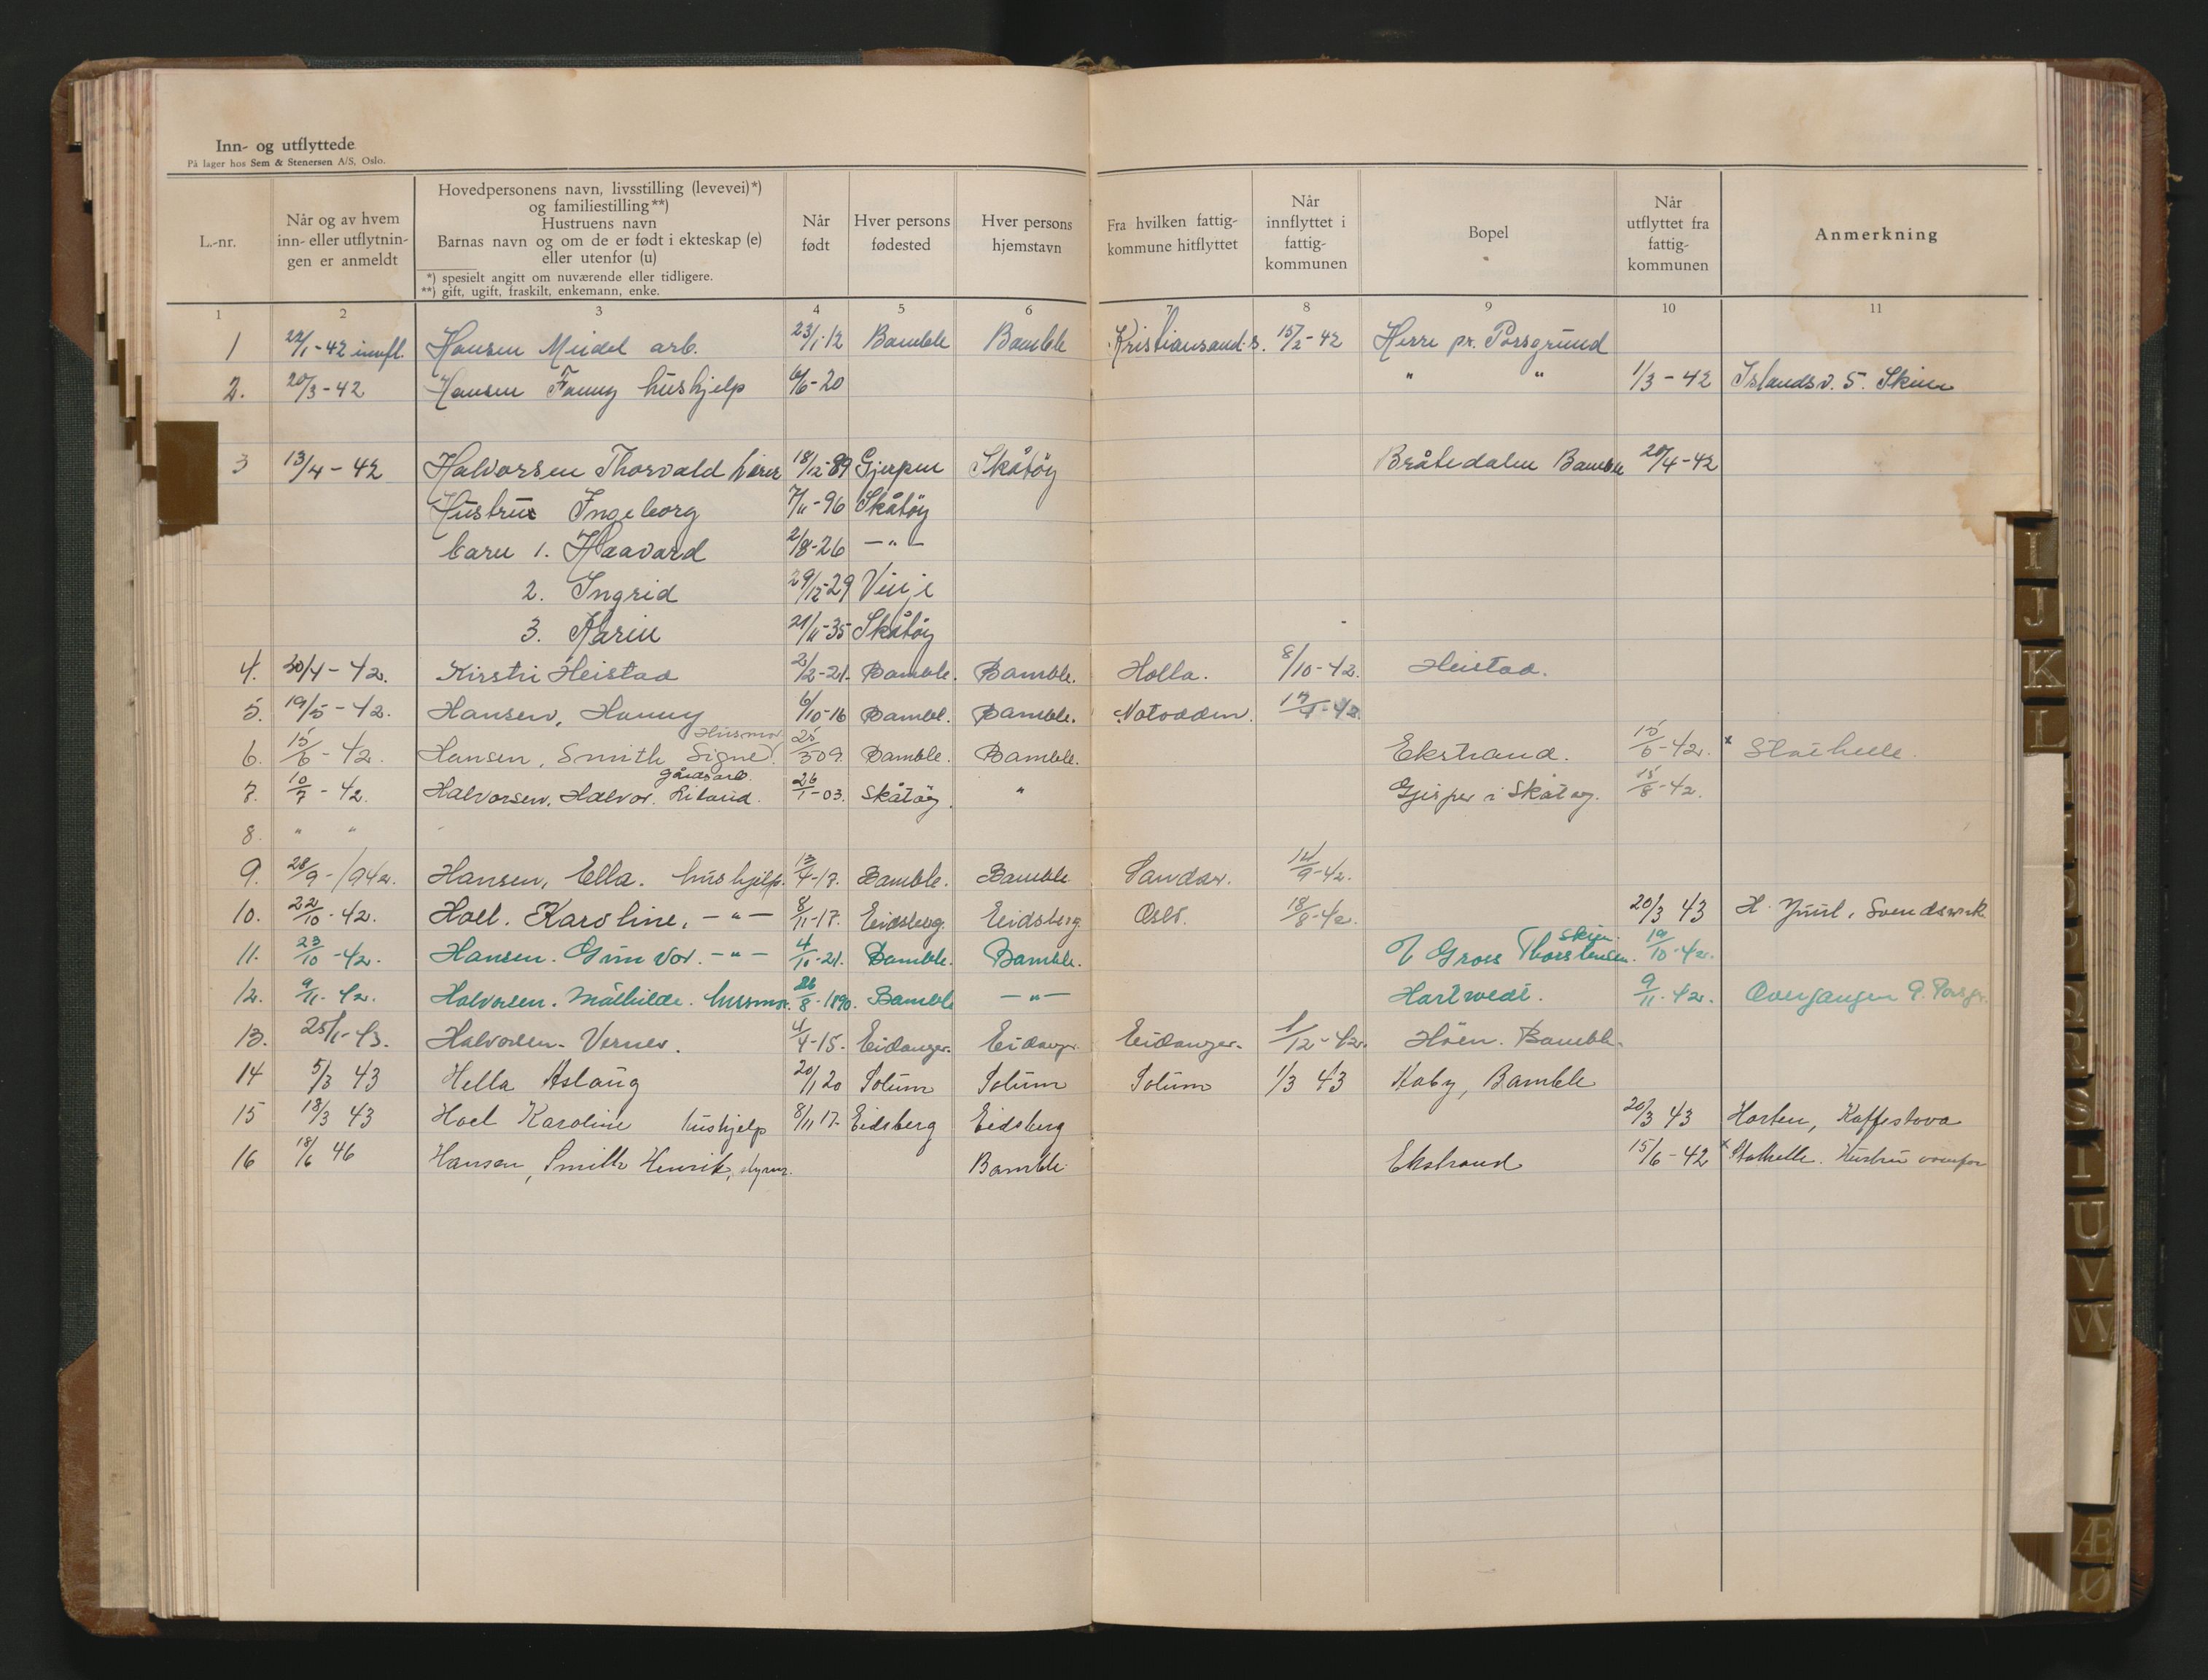 Inn- og utflyttede
På lager hos Sem & Stenersen A/S, Oslo.
L.-nr.
Når og av hvem
inn- eller utflytnin-
gen er anmeldt
Hovedpersonens navn, livsstilling (levevei)*)
og familiestilling**)
Hustruens navn
Barnas navn og om de er født i ekteskap (e)
eller utenfor (u)
*) spesielt angitt om nuværende eller tidligere.
**) gift, ugift, fraskilt, enkemann, enke.
Når
født
Hver persons
fødested
Hver persons
hjemstavn
Fra hvilken fattig-
kommune hitflyttet
Når
innflyttet i
fattig-
kommunen
Bopel
Når
utflyttet fra
fattig-
kommunen
Anmerkning
1 2 3 4 5 6 7 8 9 10 11
1 22/1-42 innfl. Hansen arb. 23/1-12 Bamble Bamble Kristiansand.s. 15/2-42 Herre pr. Porsgrund
2. 20/3-42 Hansen Fanny hushjelp 6/6-20 " " 1/3-42 Islandsv. 5. Skien
3 13/4-42 Halvorsen Thorvald 18/12-89 Gjerpen Skåtøy Bråtedalen Bamble 20/4-42
Hustru Ingeborg 7/11-96 Skåtøy
barn 1. Haavard 2/8-26 -"-
2. Ingrid 29/12-29 Vinje
3. Karin 21/11-35 Skåtøy
4. 30/4-42. Kirsti Heistad 2/2-21. Bamble. Bamble. Holla. 8/10-42. Heistad.
5. 19/5-42. Hansen, Hanny 6/10-16 Bambl. Bamble. Notodden. 17/4-42.
Husmor
6. 15/6-42. Hansen, Smith Signe. 25/5 09. Bamble. Bamble. Ekstrand. 15/6-42. x Stathelle.
gårdsarb.
7. 10/7-42. Halvorsen, Halvor. 26/1-03. Skåtøy. " i Skåtøy. 15/8-42.
8. " "
9. 28/9-1942. Hansen, Ella. hushjelp. 13/4-17. Bamble. Bamble. Sandar. 14/9-42.
10. 22/10-42. Hoel. Karoline. -"- 8/11-17. Eidsberg. Eidsberg. Oslo. 18/8-42. 20/3 43 H. Juul,
Skien.
11. 23/10-42. Hansen. Gunvor. -"- 4/10-21. Bamble. Bamble. Gross Thorstensen. 19/10-42.
12. 9/11-42. Halvorsen. Mathilde. husmor. 26/8-1890. Bamble -"- Hartwedt. 9/11-42. Overgangen 9. Porsgr.
13. 25/1-43. Halvorsen. Verner. 4/4-15. Eidanger. Eidanger. Eidanger. 1/12-42. Høen. Bamble.
14 5/3 43 Hella Aslaug 20/1 20 Solum Solum Solum 1/3 43 Raby, Bamble
15 18/3 43 Hoel Karoline hushjelp 8/11 17. Eidsberg Eidsberg 20/3 43 Horten, Kaffestova
16 18/6 46 Hansen, Smith Henrik, styrm. Bamble Ekstrand 15/6-42 x Stathelle. Hustru ovenfor
I
J
K
L
U
V
W
Æ
Ø